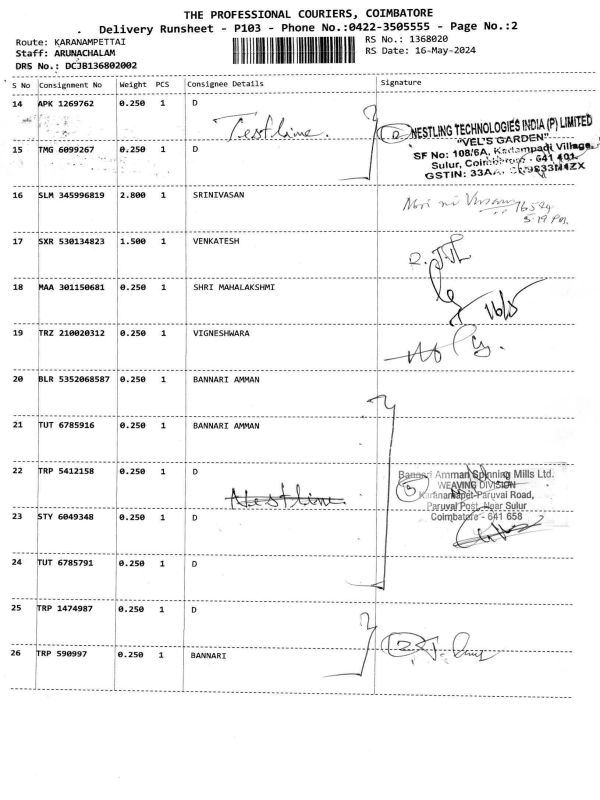 THE PROFESSIONAL COURIERS, COIMBATORE
Delivery Runsheet - P103 - Phone No.:0422-3505555 - Page No.:2
Route: KARANAMPETTAI
RS No.: 1368020
Staff: ARUNACHALAM
RS Date: 16-May-2024
DRS No.: DCJB136802002
S No Consignment No Weight PCS Consignee Details Signature
14 APK 1269762 0.250 1 D
Testline.
2 NESTLING TECHNOLOGIES INDIA (P) LIMITED
"VEL'S GARDEN"
SF No: 108/6A, Kadampadi Village,
Sulur, Coimbatore - 641 401.
GSTIN: 33AA
15 TMG 6099267 0.250 1 D
16 SLM 345996819 2.800 1 SRINIVASAN
5:19 Pm.
17 SXR 530134823 1.500 1 VENKATESH
18 MAA 301150681 0.250 1 SHRI MAHALAKSHMI
16/5
19 TRZ 210020312 0.250 1 VIGNESHWARA
20 BLR 5352068587 0.250 1 BANNARI AMMAN
21 TUT 6785916 0.250 1 BANNARI AMMAN
22 TRP 5412158 0.250 1 D
Bannari Amman Spinning Mills Ltd.
WEAVING DIVISION
5 Karanampet-Paruvai Road,
Paruval Post, Near Sulur
Coimbatore - 641 658
23 STY 6049348 0.250 1 D
24 TUT 6785791 0.250 1 D
25 TRP 1474987 0.250 1 D
2
26 TRP 590997 0.250 1 BANNARI